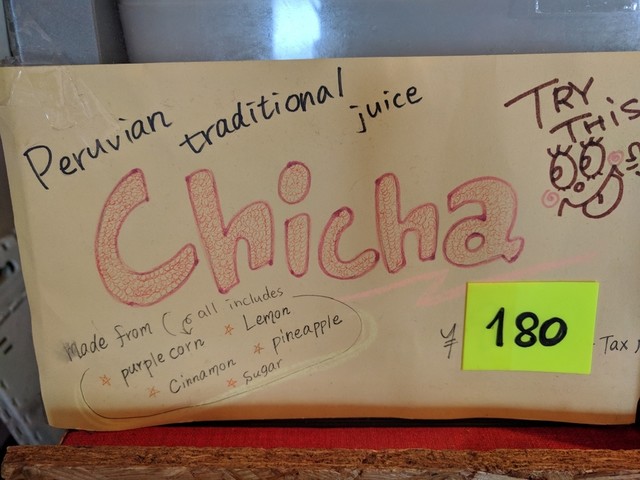 Peruvian traditional juice
TRY
THIS
Chicha
Made from (all includes
purple corn
Lemon
Cinnamon
pineapple
Sugar
¥ 180
Tax